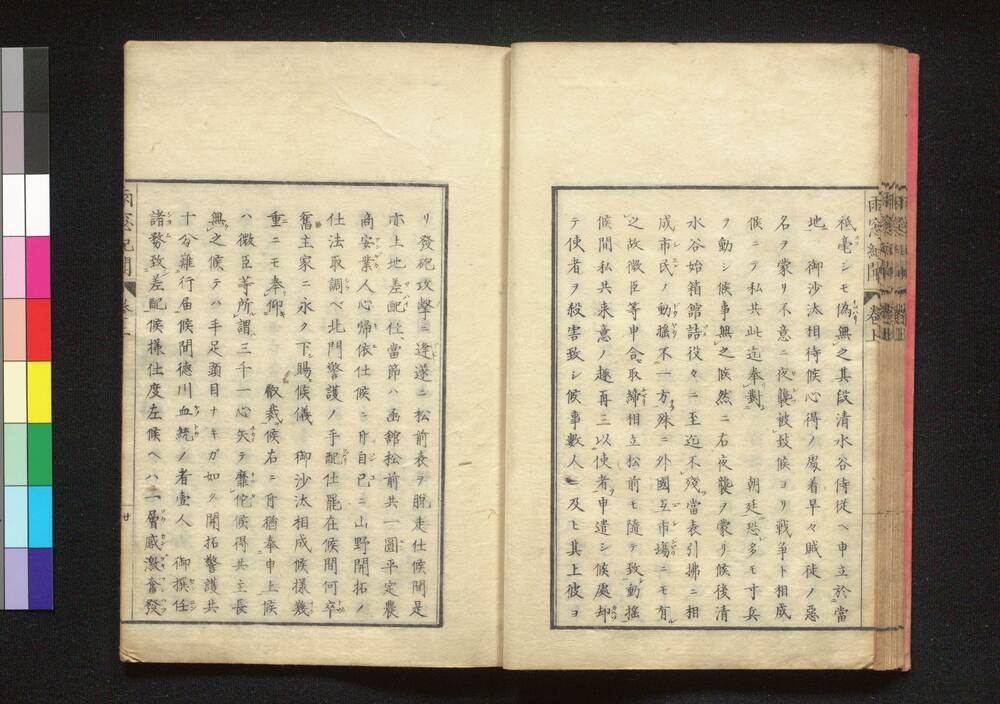 雨窓紀聞 巻上
祇毫シモ偽無之其段清水谷侍従ヘ申立於當
地 御沙汰相待候心得ノ處着早々賊徒ノ惡
名ヲ蒙リ不意ニ夜襲被致候ヨリ戦争ト相成
候ニテ私共此迄奉對 朝廷恐多モ寸兵
ヲ動シ候事無之候然ニ右夜襲ヲ蒙リ候後清
水谷始箱館詰役々ニ至迄不殘當表引拂ニ相
成市民ノ動搖不一方殊ニ外國互市場ニモ有
之故微臣等申合取締相立松前モ隨テ致動搖
候間私共来意ノ趣再三以使者申遣シ候處却
テ使者ヲ殺害致シ候事數人ニ及ヒ其上彼ヨ
リ發砲攻擊ニ逢遂ニ松前表ヲ脱走仕候間是
亦上地差配仕當節ハ函館松前共一圓平定農
商安業人心帰依仕候ニ付自己ニ山野開拓ノ
仕法取調ベ北門警護ノ手配仕罷在候間何卒
舊主家ニ永ク下賜候儀 御沙汰相成候樣幾
重ニモ奉仰 叡裁候右ニ付猶奉申上候
ハ微臣等所謂三千一心矢テ靡佗候得共主長
無之候テハ手足頭目ナキガ如ク開拓警護共
十分難行届候間德川血統ノ者壹人 御撰任
諸務致差配候様仕度左候ヘハ一層感激奮發
雨窓紀聞 巻上 廿